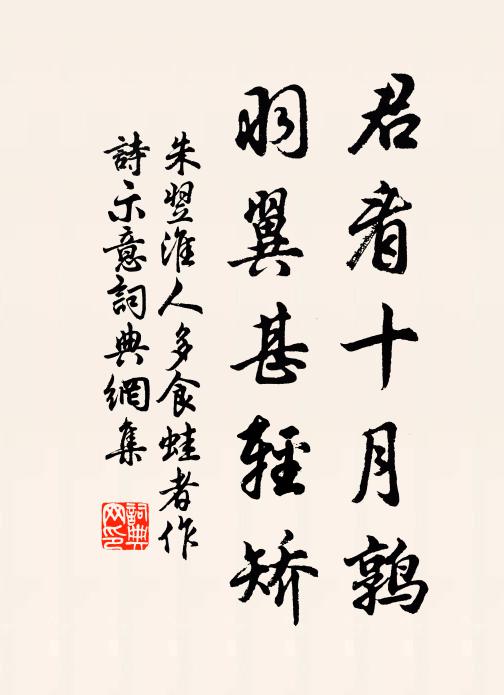 君看十月鶉
羽翼甚輕矯
朱翌淮人多食蛙者作
詩示意詞典網集
詞典
网印